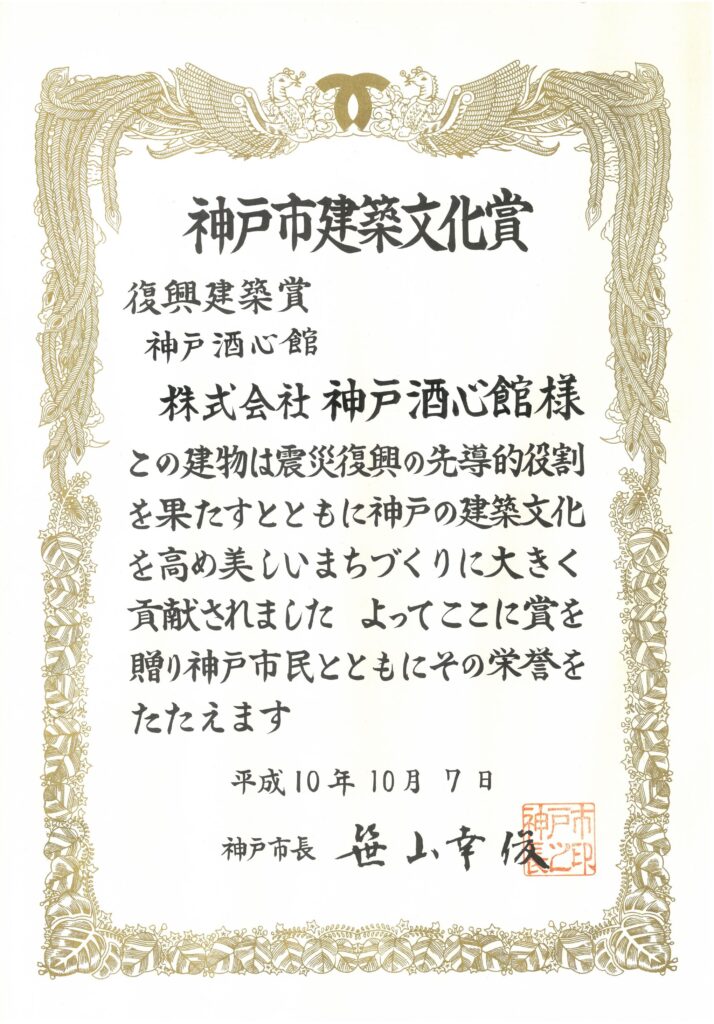 神戸市建築文化賞
復興建築賞
神戸酒心館
株式会社 神戸酒心館様
この建物は震災復興の先導的役割
を果たすとともに神戸の建築文化
を高め美しいまちづくりに大きく
貢献されました よってここに賞を
贈り神戸市民とともにその栄誉を
たたえます
平成10年10月7日
神戸市長 笹山幸俊
神戸市
長之印